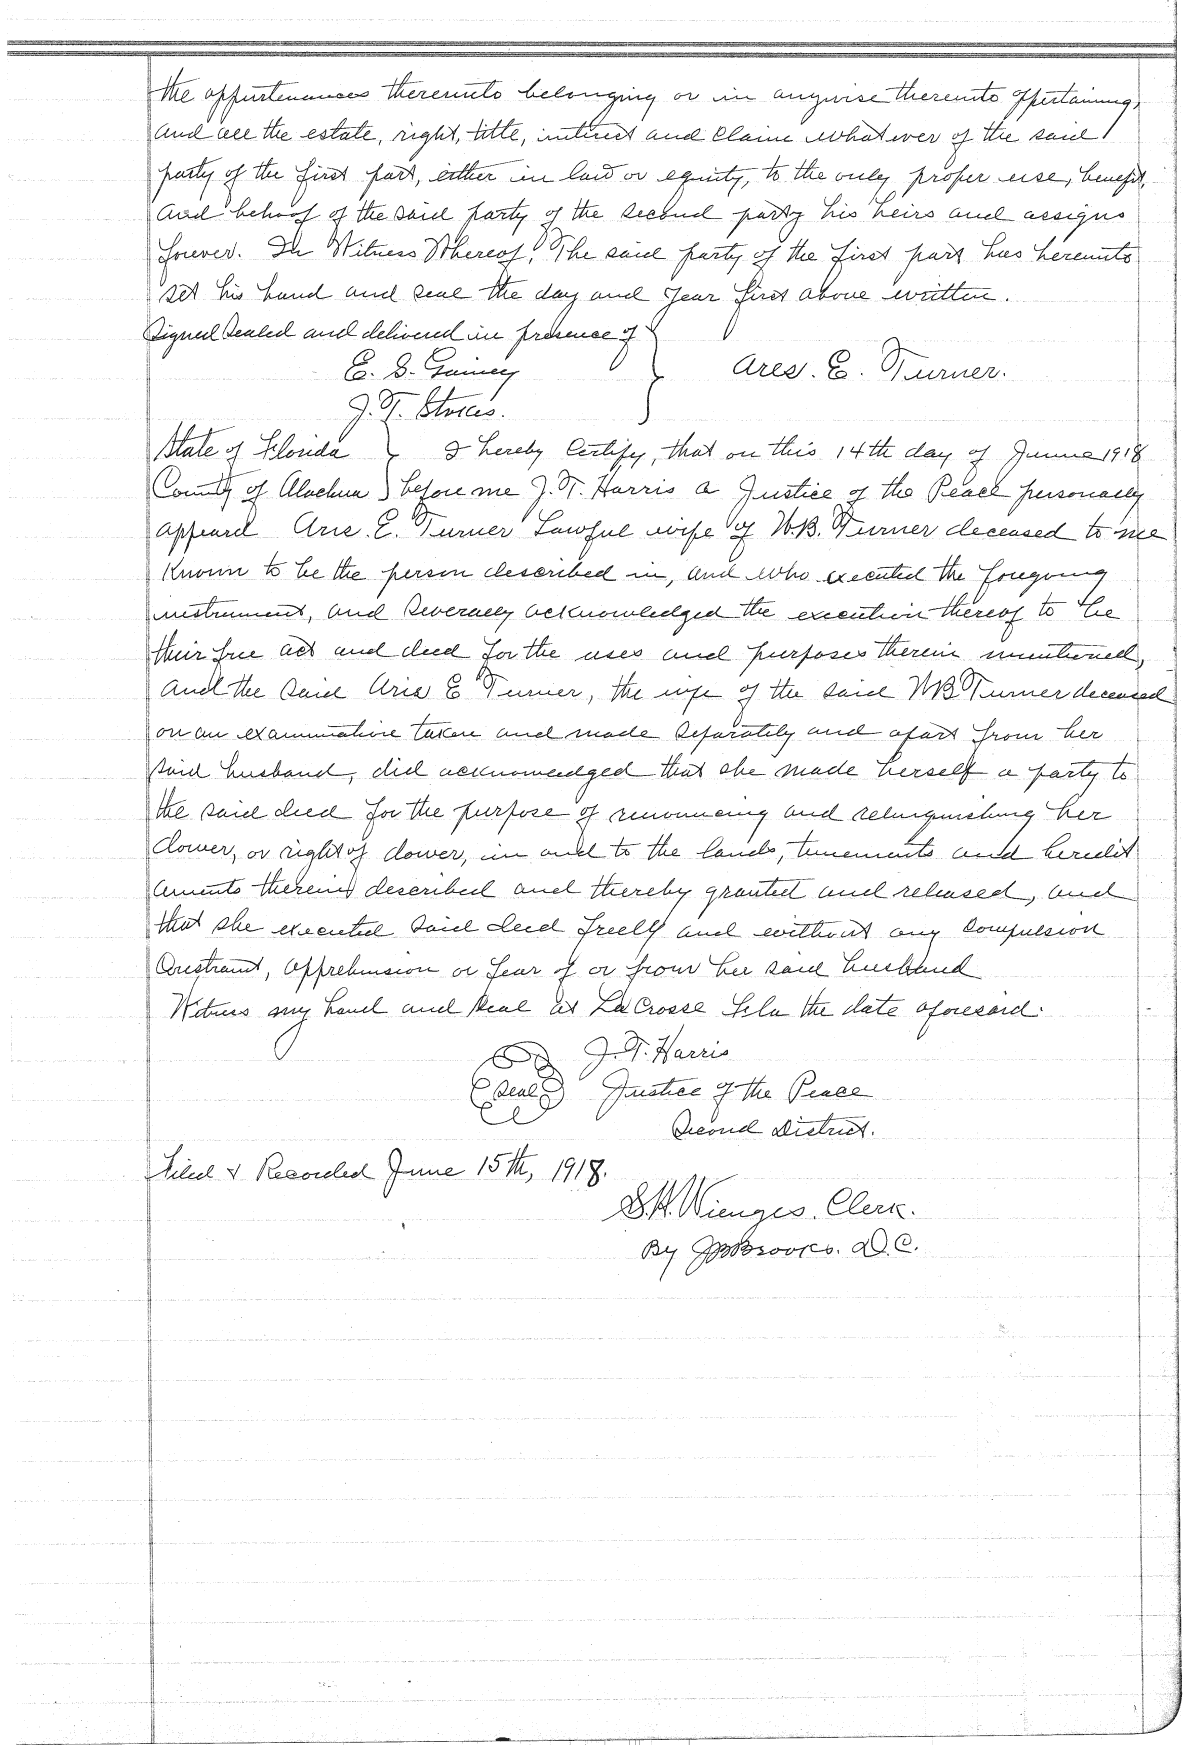 the appurtenances thereunto belonging or in anywise thereunto appertaining,
and all the estate, right, title, interest and claim whatever of the said
party of the first part, either in law or equity, to the only proper use, benefit,
and behoof of the said party of the second party his heirs and assigns
forever. In Witness Whereof, The said party of the first part has hereunto
set his hand and seal the day and year first above written.
Signed Sealed and delivered in presence of
E. S. Gainey
Ares. E. Turner.
J. T. Stokes.
State of Florida } I hereby Certify, that on this 14th day of June 1918
County of Alachua } before me J. T. Harris a Justice of the Peace personally
appeard Aris. E. Turner Lawful wife of W.B. Turner deceased to me
Known to be the person described in, and who executed the foregoing
instrument, and severally acknowledged the execution thereof to be
their free act and deed for the uses and purposes therein mentioned,
and the said Aris E Turner, the wife of the said W B Turner deceased
on an examination taken and made separately and apart from her
said husband, did acknowledged that she made herself a party to
the said deed for the purpose of renouncing and relinquishing her
dower, or right of dower, in and to the lands, tenements and heredit
aments therein described and thereby granted and released, and
that she executed said deed freely and without any compulsion
Constraint, apprehension or fear of or from her said husband
Witness my hand and seal at LaCrosse Fla the date aforesaid.
J. T. Harris
(Seal) Justice of the Peace
Second District.
Filed & Recorded June 15th, 1918.
S. H. Wienges. Clerk.
By J B Brooks. D. C.